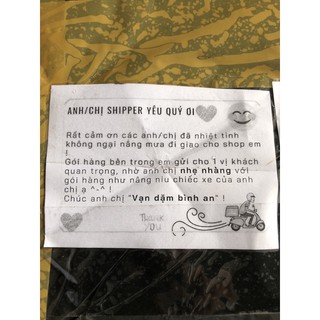 ANH/CHỊ SHIPPER YÊU QUÝ ƠI
Rất cảm ơn các anh/chị đã nhiệt tình
không ngại nắng mưa đi giao cho shop em
!
Gói hàng bên trong em gửi cho 1 vị khách
quan trọng, nhờ anh chị nhẹ nhàng với
gói hàng như nâng niu chiếc xe của anh
chị ạ ^-^ !
Chúc anh chị "Vạn dặm bình an" !
THANK
YOU